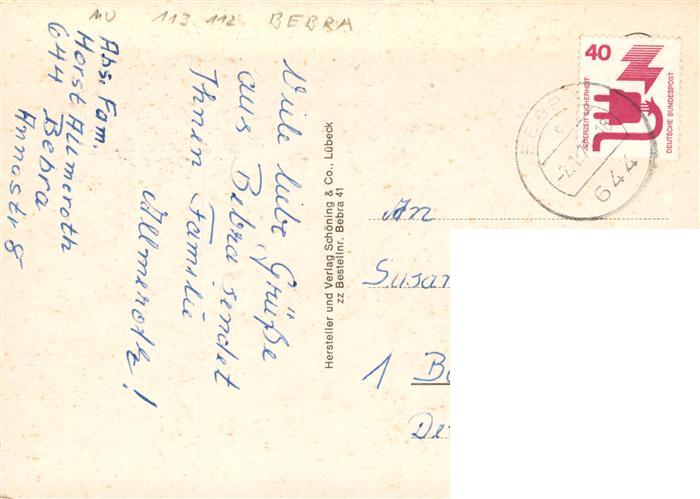 MU 113 112 BEBRA
Abs. Fam.
Horst Allmeroth
644 Bebra
Annastr 8
Viele liebe Grüße
aus Bebra sendet
Ihnen Familie
Allmeroth!
Hersteller und Verlag Schöning & Co., Lübeck
zz Bestellnr. Bebra 41
40
JEDERZEIT SICHERHEIT
DEUTSCHE BUNDESPOST
644
An
Susan
1 B
De